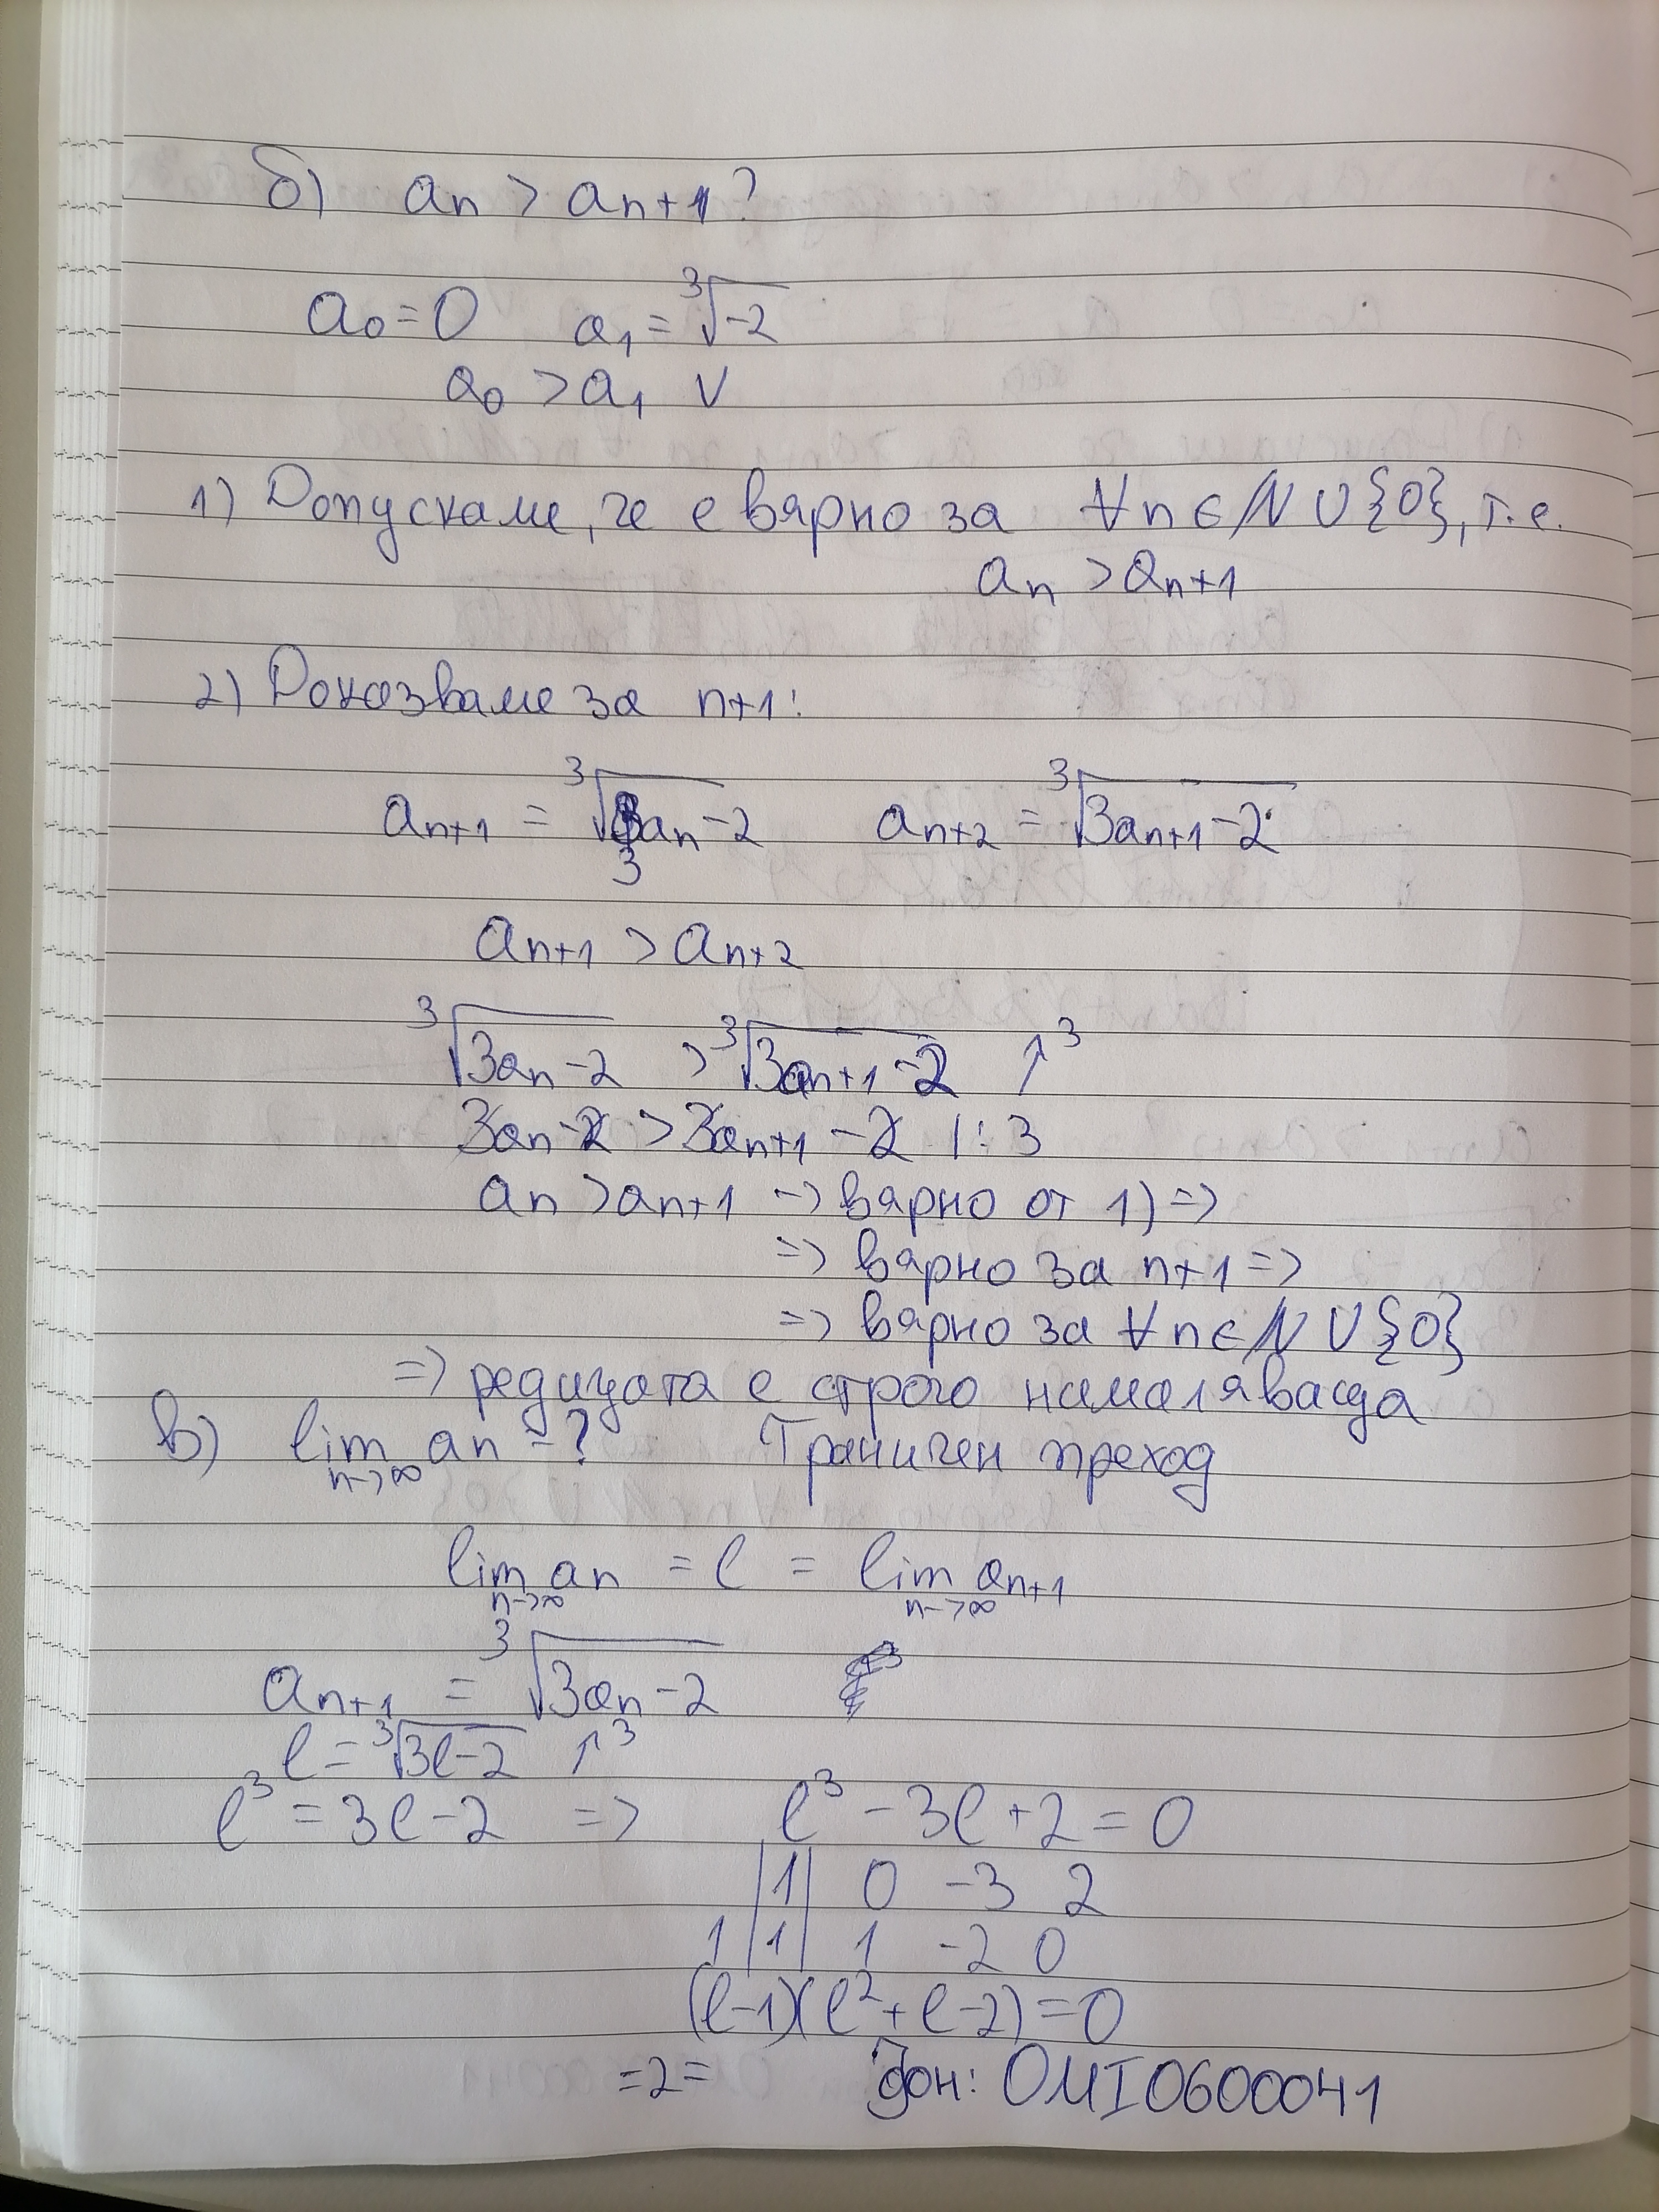 б) an > an+1?
a0 = 0 a1 = ³√-2
a0 > a1 v
1) Допускаме, че е вярно за ∀n∈N∪{0}, т.е.
an > an+1
2) Доказваме за n+1:
an+1 = ³√3an-2 an+2 = ³√3an+1-2
3
an+1 > an+2
³√3an-2 > ³√3an+1-2 ↑³
3an-2 > 3an+1-2 |:3
an > an+1 -> вярно от 1) =>
=> вярно за n+1 =>
=> вярно за ∀n∈N∪{0}
=> редицата е строго намаляваща
в) lim an = ? Граничен преход
n->∞
lim an = l = lim an+1
n->∞ n->∞
an+1 = ³√3an-2
l = ³√3l-2 ↑³
l³ = 3l-2 => l³-3l+2=0
|1| 0 -3 2
1 |1| 1 -2 0
(l-1)(l²+l-2)=0
=2= фон: 0MI0600041